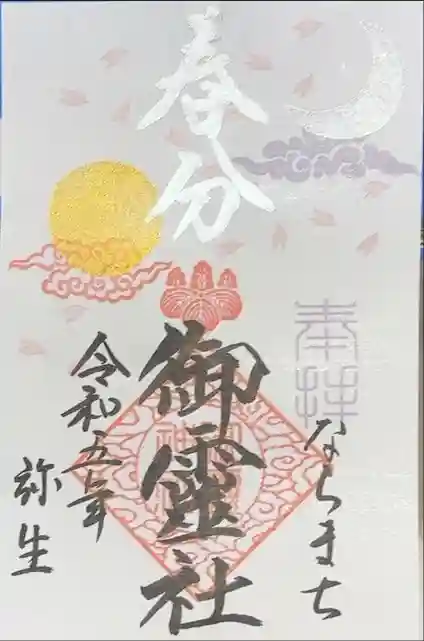 春分
奉拝
ならまち
御靈社
令和五年
弥生